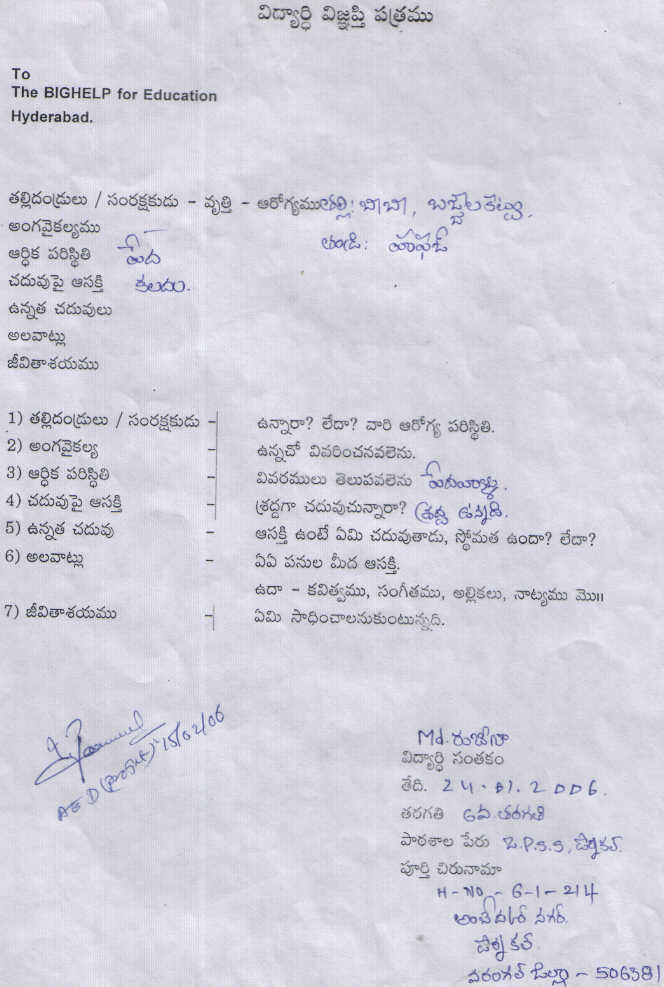 విద్యార్థి విజ్ఞప్తి పత్రము
To
The BIGHELP for Education
Hyderabad.
తల్లిదండ్రులు / సంరక్షకుడు - వృత్తి - ఆరోగ్యము తల్లి:
అంగవైకల్యము - తండ్రి:
ఆర్థిక పరిస్థితి పేద
చదువుపై ఆసక్తి కలదు.
ఉన్నత చదువులు
అలవాట్లు
జీవితాశయము
1) తల్లిదండ్రులు / సంరక్షకుడు - ఉన్నారా? లేదా? వారి ఆరోగ్య పరిస్థితి.
2) అంగవైకల్య - ఉన్నచో వివరించనవలెను.
3) ఆర్థిక పరిస్థితి - వివరములు తెలుపవలెను పేదవాళ్ళు.
4) చదువుపై ఆసక్తి - శ్రద్దగా చదువుచున్నారా? శ్రద్ద ఉన్నది.
5) ఉన్నత చదువు - ఆసక్తి ఉంటే ఏమి చదువుతాడు, స్థోమత ఉందా? లేదా?
6) అలవాట్లు - ఏఏ పనుల మీద ఆసక్తి.
ఉదా - కవిత్వము, సంగీతము, అల్లికలు, నాట్యము మొ॥
7) జీవితాశయము - ఏమి సాధించాలనుకుంటున్నది.
15/02/06
Md. రుబీనా
విద్యార్థి సంతకం
తేది. 24.01.2006.
తరగతి 6వ తరగతి
పాఠశాల పేరు Z.P.S.S, డోర్నకల్.
పూర్తి చిరునామా
H-NO - 6-1-214
అంబేద్కర్ నగర్.
డోర్నకల్.
వరంగల్ జిల్లా - 506381